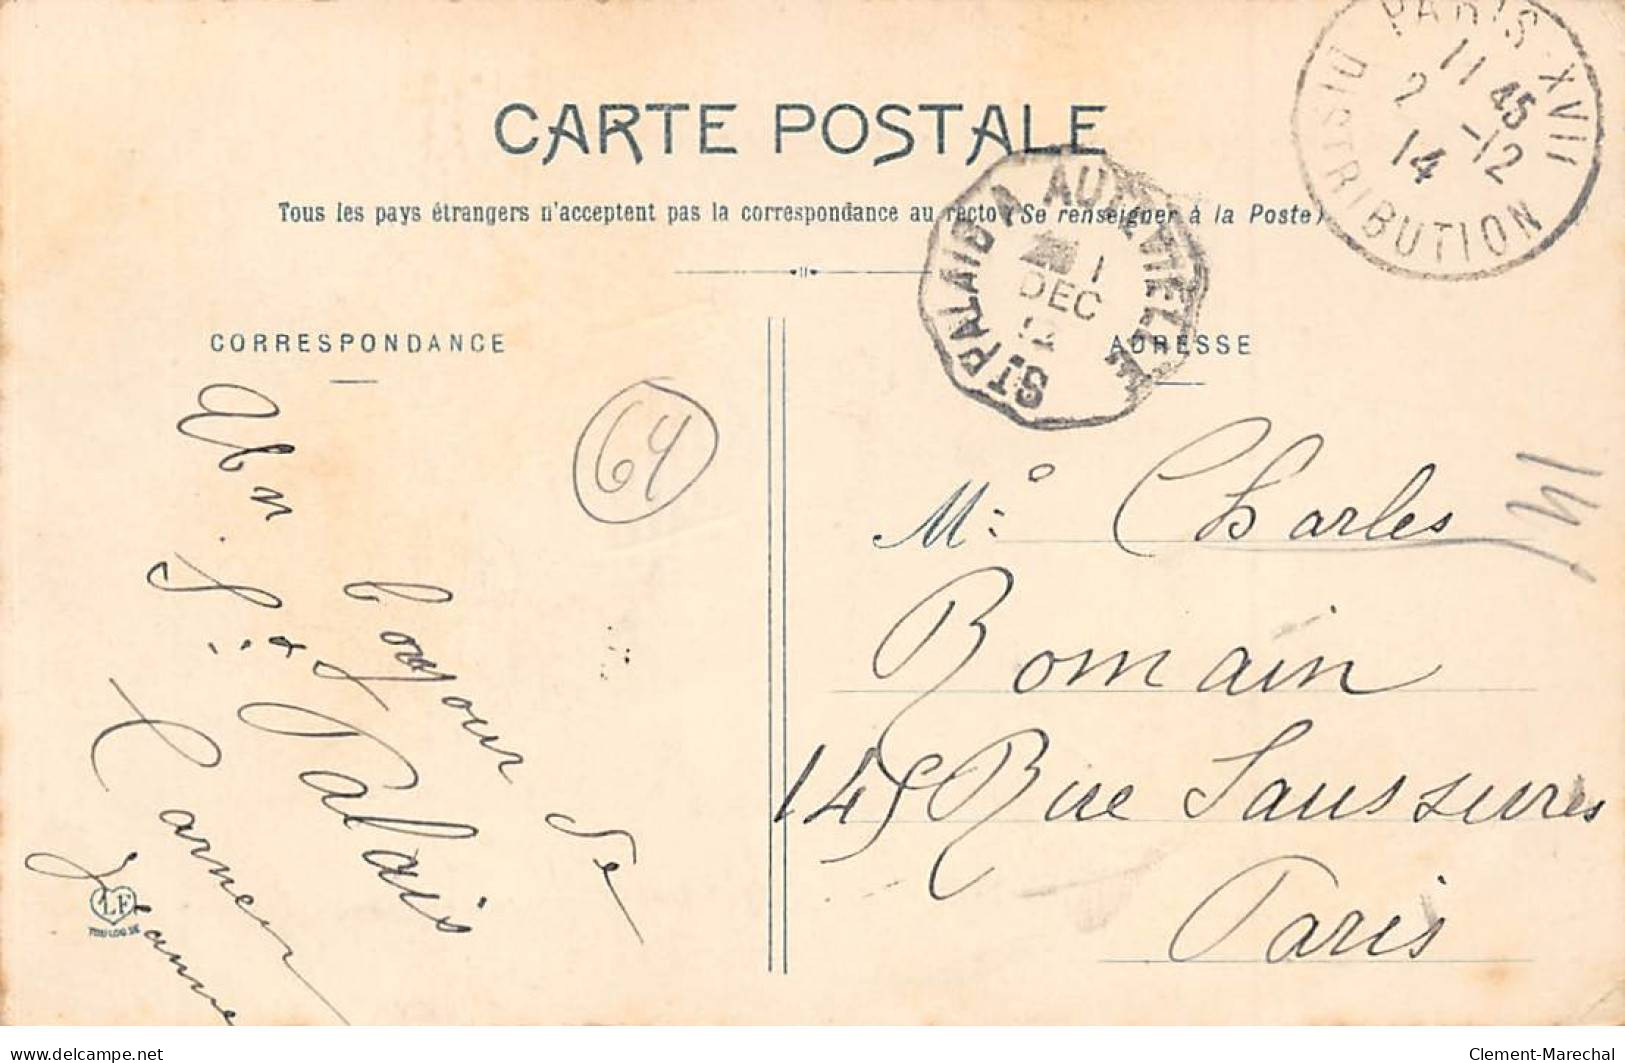 CARTE POSTALE
Tous les pays étrangers n'acceptent pas la correspondance au recto (Se renseigner à la Poste)
PARIS XVII
DISTRIBUTION
11 45
2 -12
14
ST PALAIS A AUTEVIELLE
1
DEC
CORRESPONDANCE
ADRESSE
64
141
Un
bonjour de
St Palais
Jeanne
LF
TOULOUSE
Mr Charles
Romain
145 Rue Saussures
Paris
www.delcampe.net
Clement-Marechal